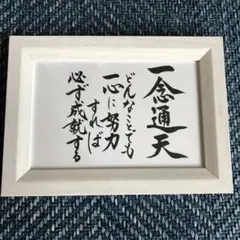 一念通天
どんなことでも
一心に努力
すれば
必ず成就する